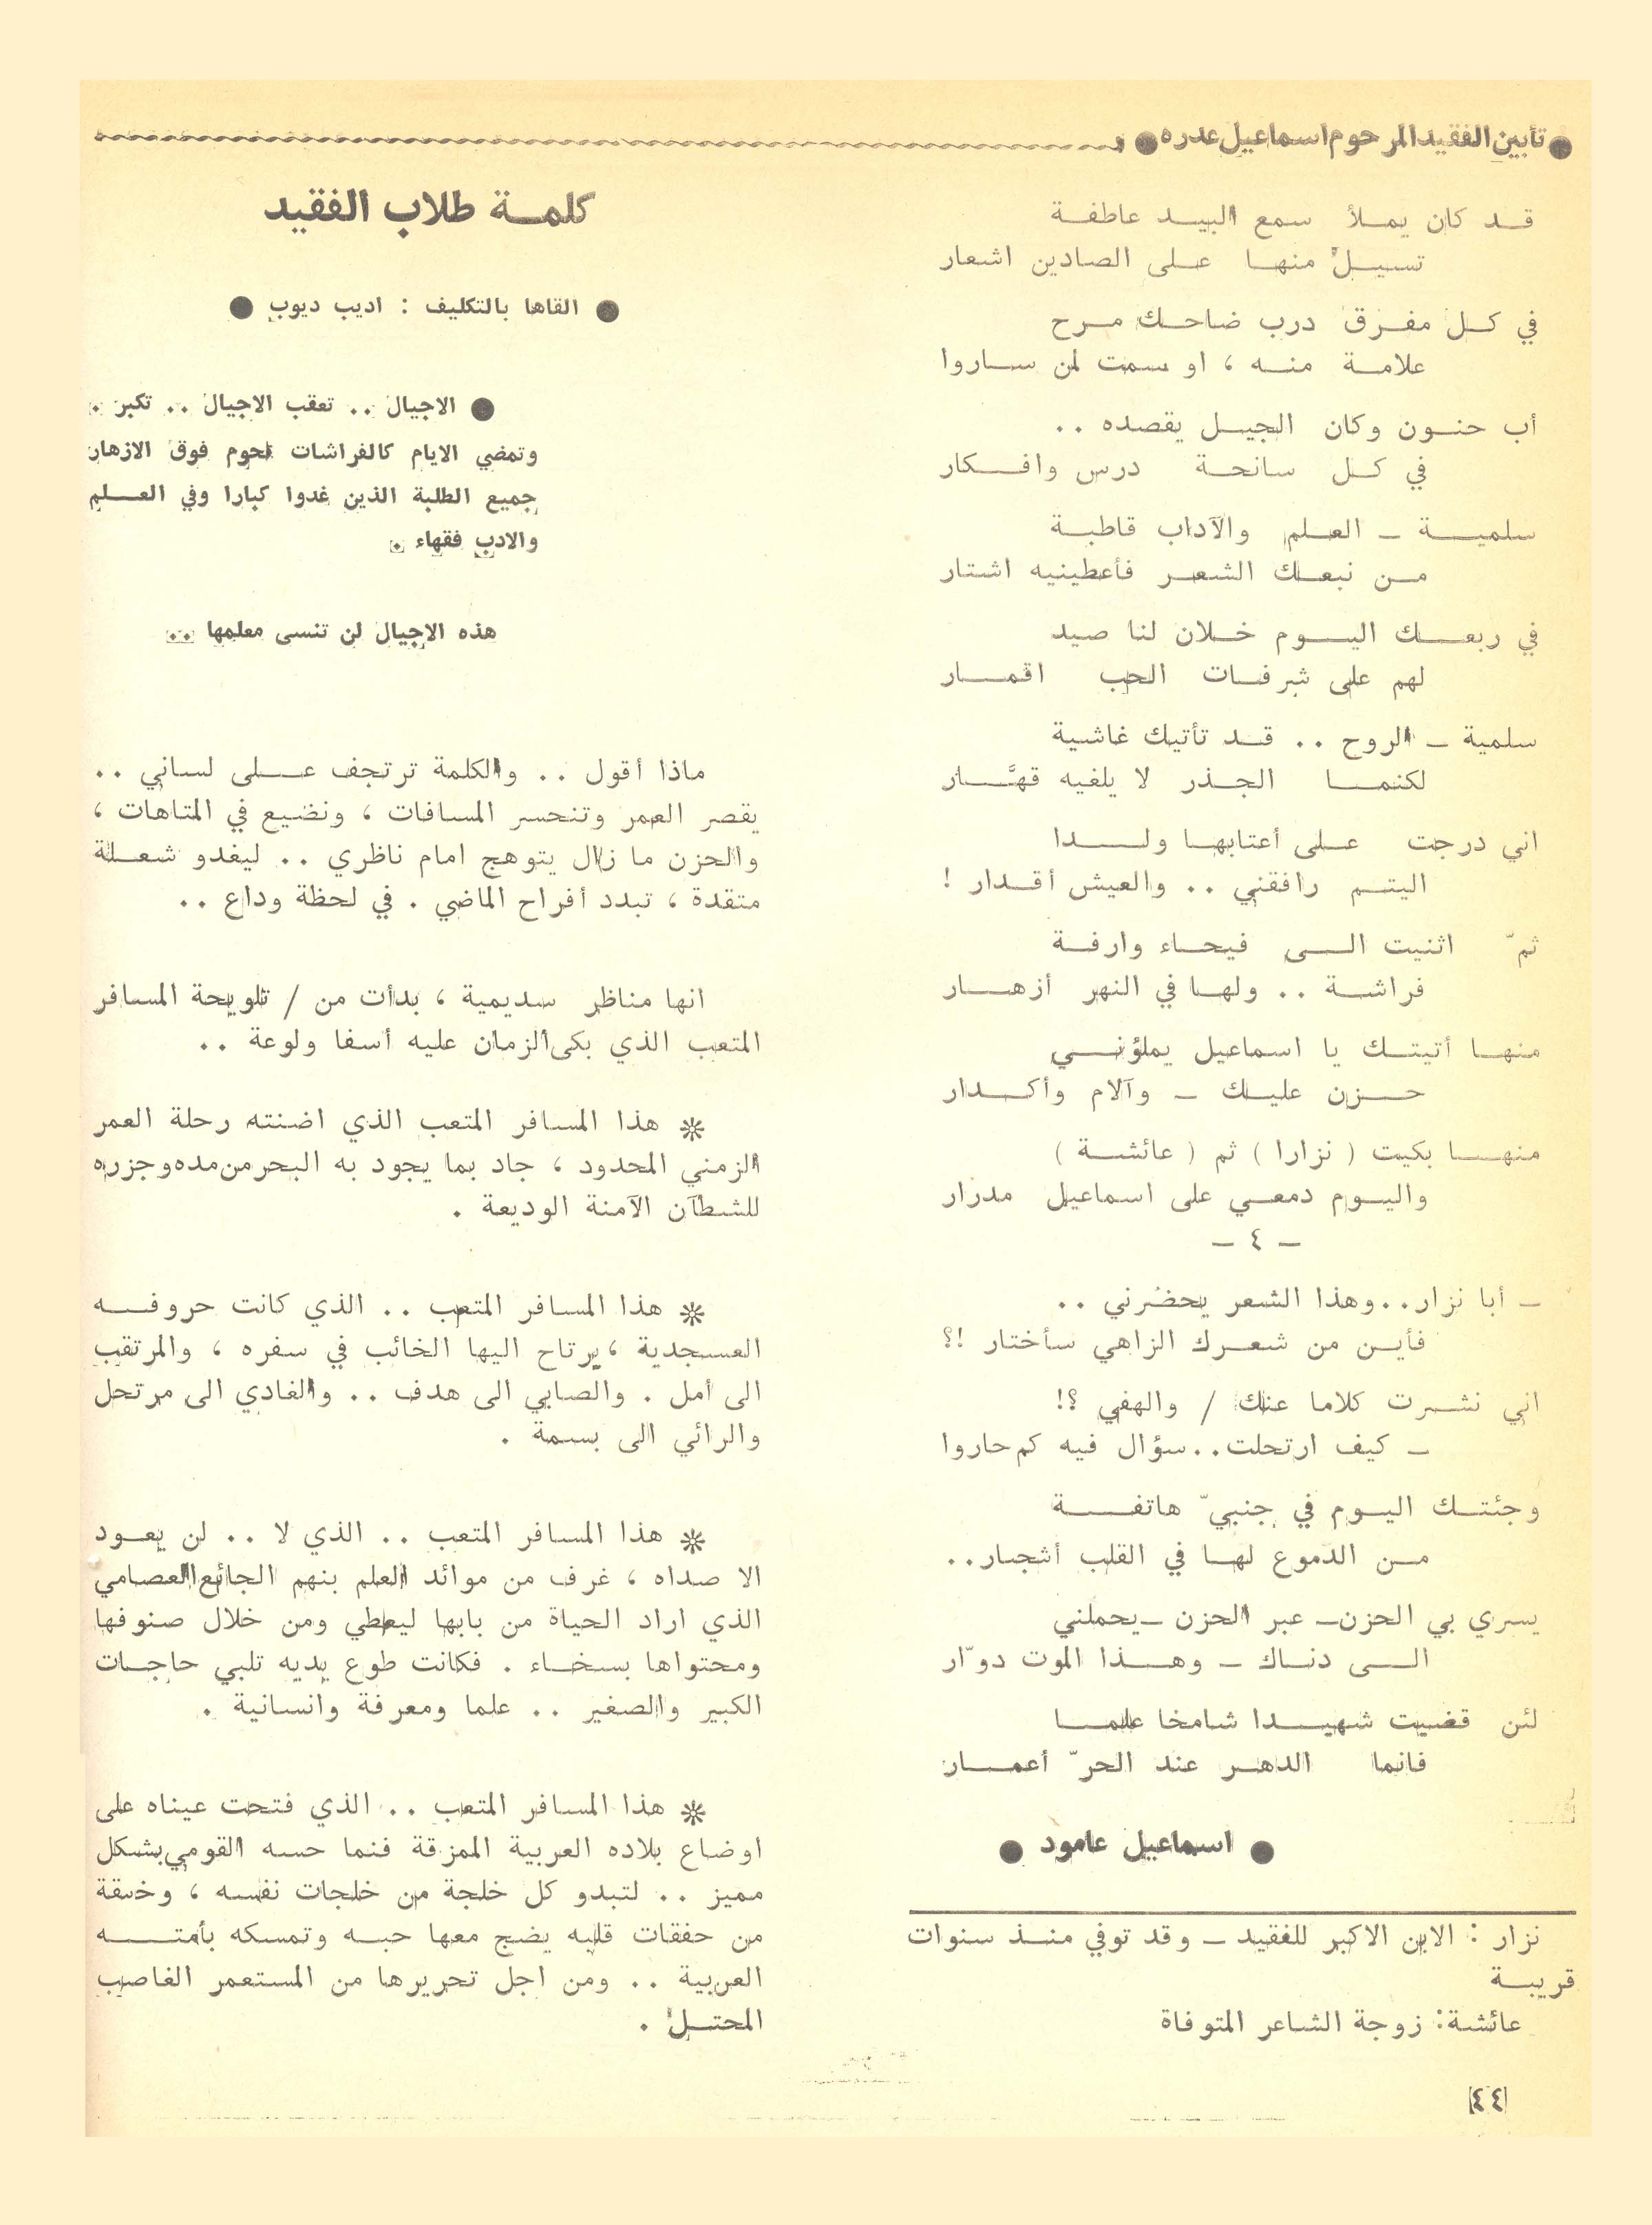 ● تأبين الفقيد المرحوم اسماعيل عدره ●
قد كان يملأ سمع البيد عاطفة
تسيل منها على الصادين اشعار
في كل مفرق درب ضاحك مرح
علامة منه ، او سمت لمن ساروا
أب حنون وكان الجيل يقصده ..
في كل سانحة درس وافكار
سلمية - العلم والآداب قاطبة
من نبعك الشعر فأعطينيه اشتار
في ربعك اليوم خلان لنا صيد
لهم على شرفات الحب اقمار
سلمية - الروح .. قد تأتيك غاشية
لكنما الجذر لا يلغيه قهَّار
اني درجت على أعتابها ولدا
اليتم رافقني .. والعيش أقدار !
ثمّ اثنيت الى فيحاء وارفة
فراشة .. ولها في النهر أزهار
منها أتيتك يا اسماعيل يملؤني
حزن عليك - وآلام وأكدار
منها بكيت ( نزارا ) ثم ( عائشة )
واليوم دمعي على اسماعيل مدرار
- ٤ -
- أبا نزار..وهذا الشعر يحضرني ..
فأين من شعرك الزاهي سأختار !؟
اني نشرت كلاما عنك / والهفي ؟!
- كيف ارتحلت..سؤال فيه كم حاروا
وجئتك اليوم في جنبيّ هاتفة
من الدموع لها في القلب أشجار..
يسري بي الحزن- عبر الحزن -يحملني
الى دناك - وهذا الموت دوّار
لئن قضيت شهيدا شامخا علما
فانما الدهر عند الحرّ أعمار
● اسماعيل عامود ●
نزار : الابن الاكبر للفقيد - وقد توفي منذ سنوات
قريبة
عائشة: زوجة الشاعر المتوفاة
كلمة طلاب الفقيد
● القاها بالتكليف : اديب ديوب ●
● الاجيال .. تعقب الاجيال .. تكبر .
وتمضي الايام كالفراشات تحوم فوق الازهار
جميع الطلبة الذين غدوا كبارا وفي العلم
والادب فقهاء .
هذه الاجيال لن تنسى معلمها ..
ماذا أقول .. والكلمة ترتجف على لساني ..
يقصر العمر وتنحسر المسافات ، ونضيع في المتاهات ،
والحزن ما زال يتوهج امام ناظري .. ليغدو شعلة
متقدة ، تبدد أفراح الماضي . في لحظة وداع ..
انها مناظر سديمية ، بدأت من / تلويحة المسافر
المتعب الذي بكى الزمان عليه أسفا ولوعة ..
* هذا المسافر المتعب الذي اضنته رحلة العمر
الزمني المحدود ، جاد بما يجود به البحر من مده وجزره
للشطآن الآمنة الوديعة .
* هذا المسافر المتعب .. الذي كانت حروفه
العسجدية ، يرتاح اليها الخائب في سفره ، والمرتقب
الى أمل . والصابي الى هدف .. والغادي الى مرتحل
والرائي الى بسمة .
* هذا المسافر المتعب .. الذي لا .. لن يعود
الا صداه ، غرف من موائد العلم بنهم الجائع العصامي
الذي اراد الحياة من بابها ليعطي ومن خلال صنوفها
ومحتواها بسخاء . فكانت طوع يديه تلبي حاجات
الكبير والصغير .. علما ومعرفة وانسانية .
* هذا المسافر المتعب .. الذي فتحت عيناه على
اوضاع بلاده العربية الممزقة فنما حسه القومي بشكل
مميز .. لتبدو كل خلجة من خلجات نفسه ، وخفقة
من حفقات قلبه يضج معها حبه وتمسكه بأمته
العربية .. ومن اجل تحريرها من المستعمر الغاصب
المحتل .
٤٤